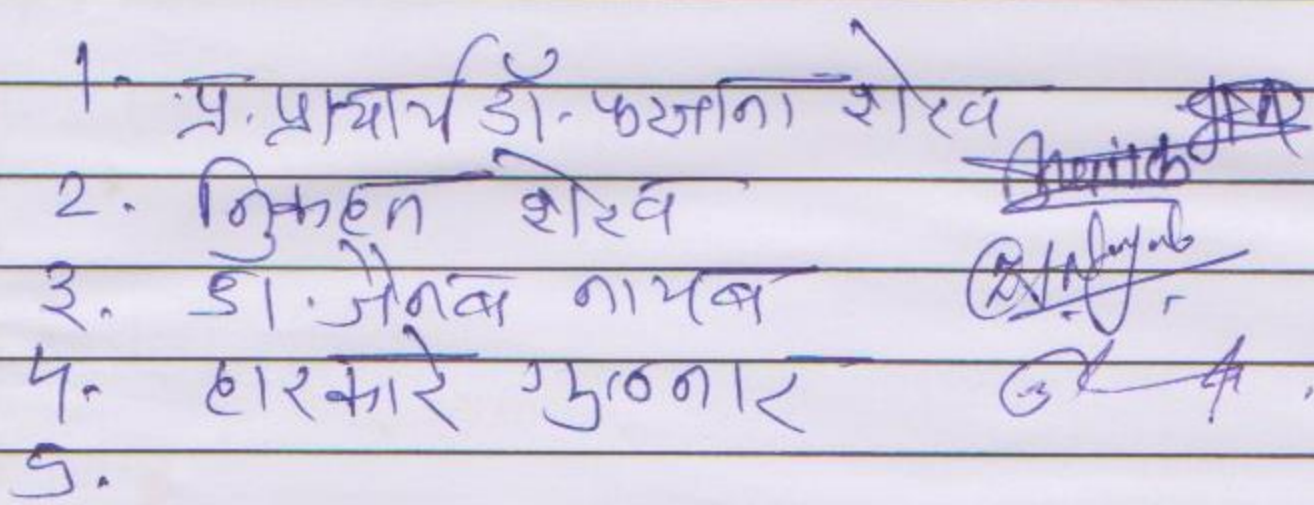 1. प्र. प्राचार्य डॉ. फरजाना शेख
2. निकहत शेख
3. डॉ. जैनब नायब
4. हारकारे गुलनार
5.